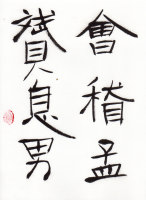 會稽孟
息男